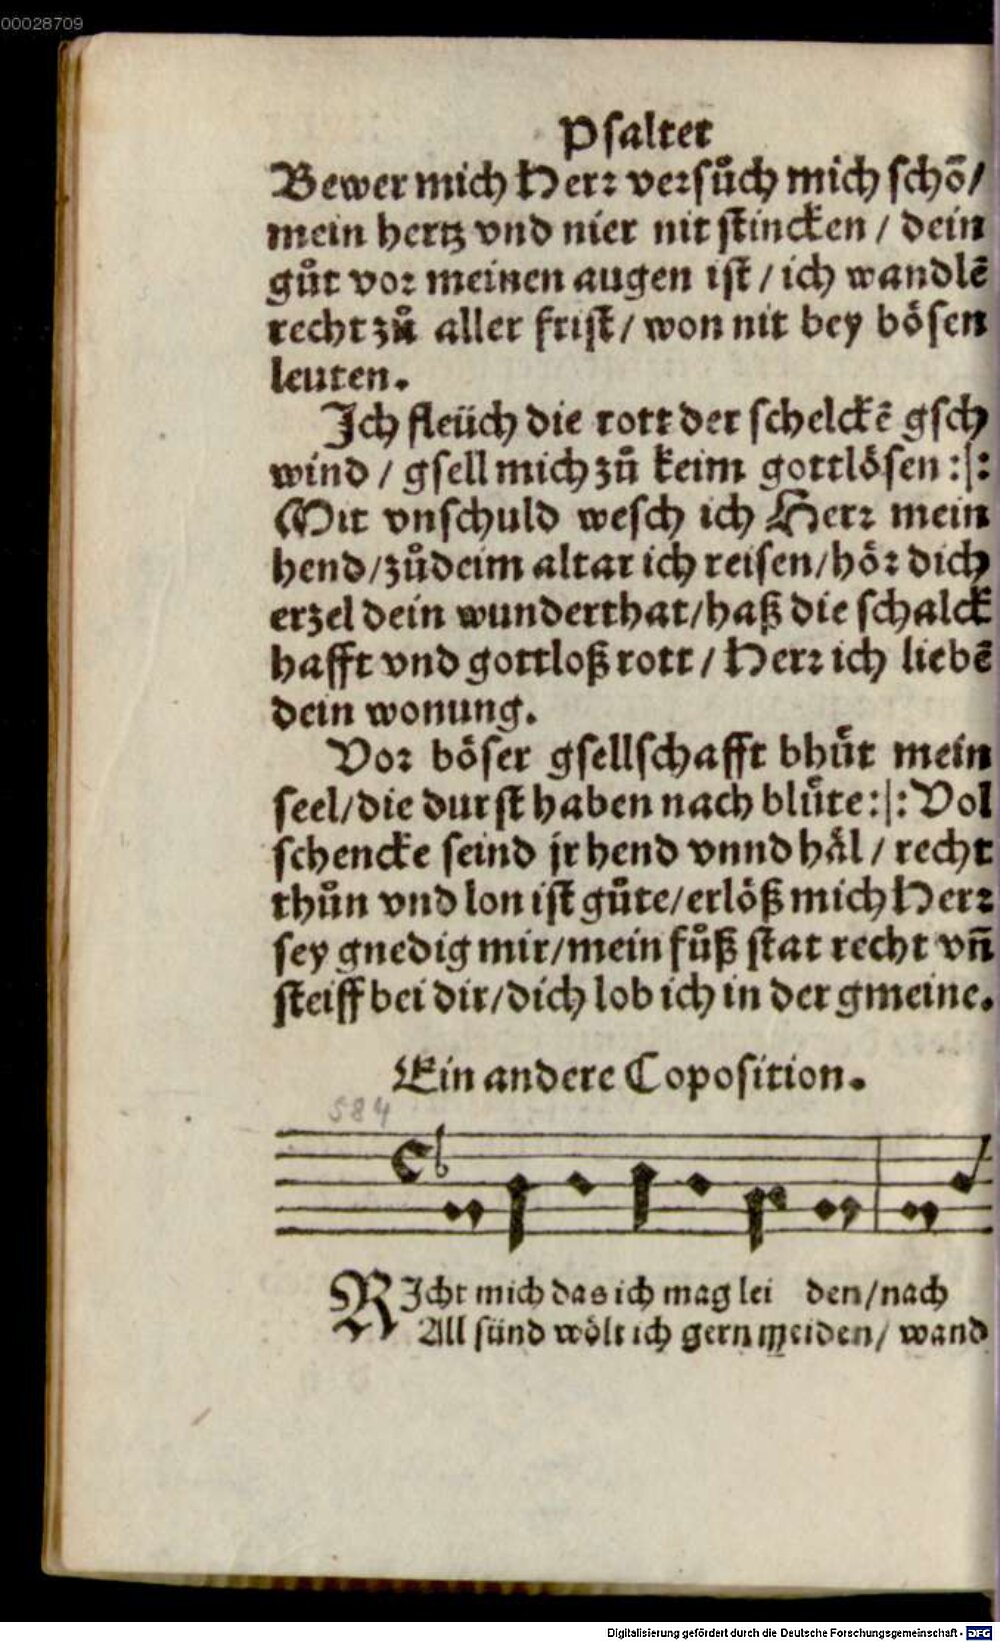 00028709
Psalter
Bewer mich Herr versůch mich schõ/
mein hertz vnd nier nit stincken / dein
gůt vor meinen augen ist / ich wandlẽ
recht zů aller frist / won nit bey bösen
leuten.
Ich fleüch die rott der schelckẽ gsch
wind / gsell mich zů keim gottlösen :|:
Mit vnschuld wesch ich Herr mein
hend/zůdeim altar ich reisen/hör dich
erzel dein wunderthat/haß die schalck
hafft vnd gottloß rott / Herr ich liebẽ
dein wonung.
Vor böser gsellschafft bhüt mein
seel/die durst haben nach blüte:|: Vol
schencke seind jr hend vnnd häl / recht
thůn vnd lon ist gůte/erlöß mich Herr
sey gnedig mir/mein fůß stat recht vñ
steiff bei dir/dich lob ich in der gmeine.
Ein andere Coposition.
584
RIcht mich das ich mag lei den/nach
All sünd wölt ich gern meiden/ wand
Digitalisierung gefördert durch die Deutsche Forschungsgemeinschaft - DFG